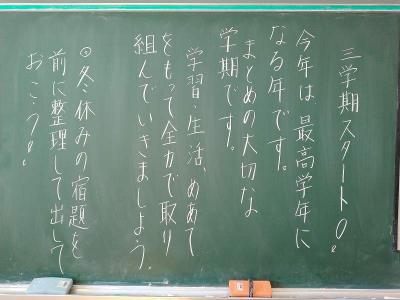 三学期スタート!
今年は最高学年に
なる年です。
まとめの大切な
学期です。
学習・生活、めあて
をもって全力で取り
組んでいきましょう。
◎冬休みの宿題を
前に整理して出して
おこう!